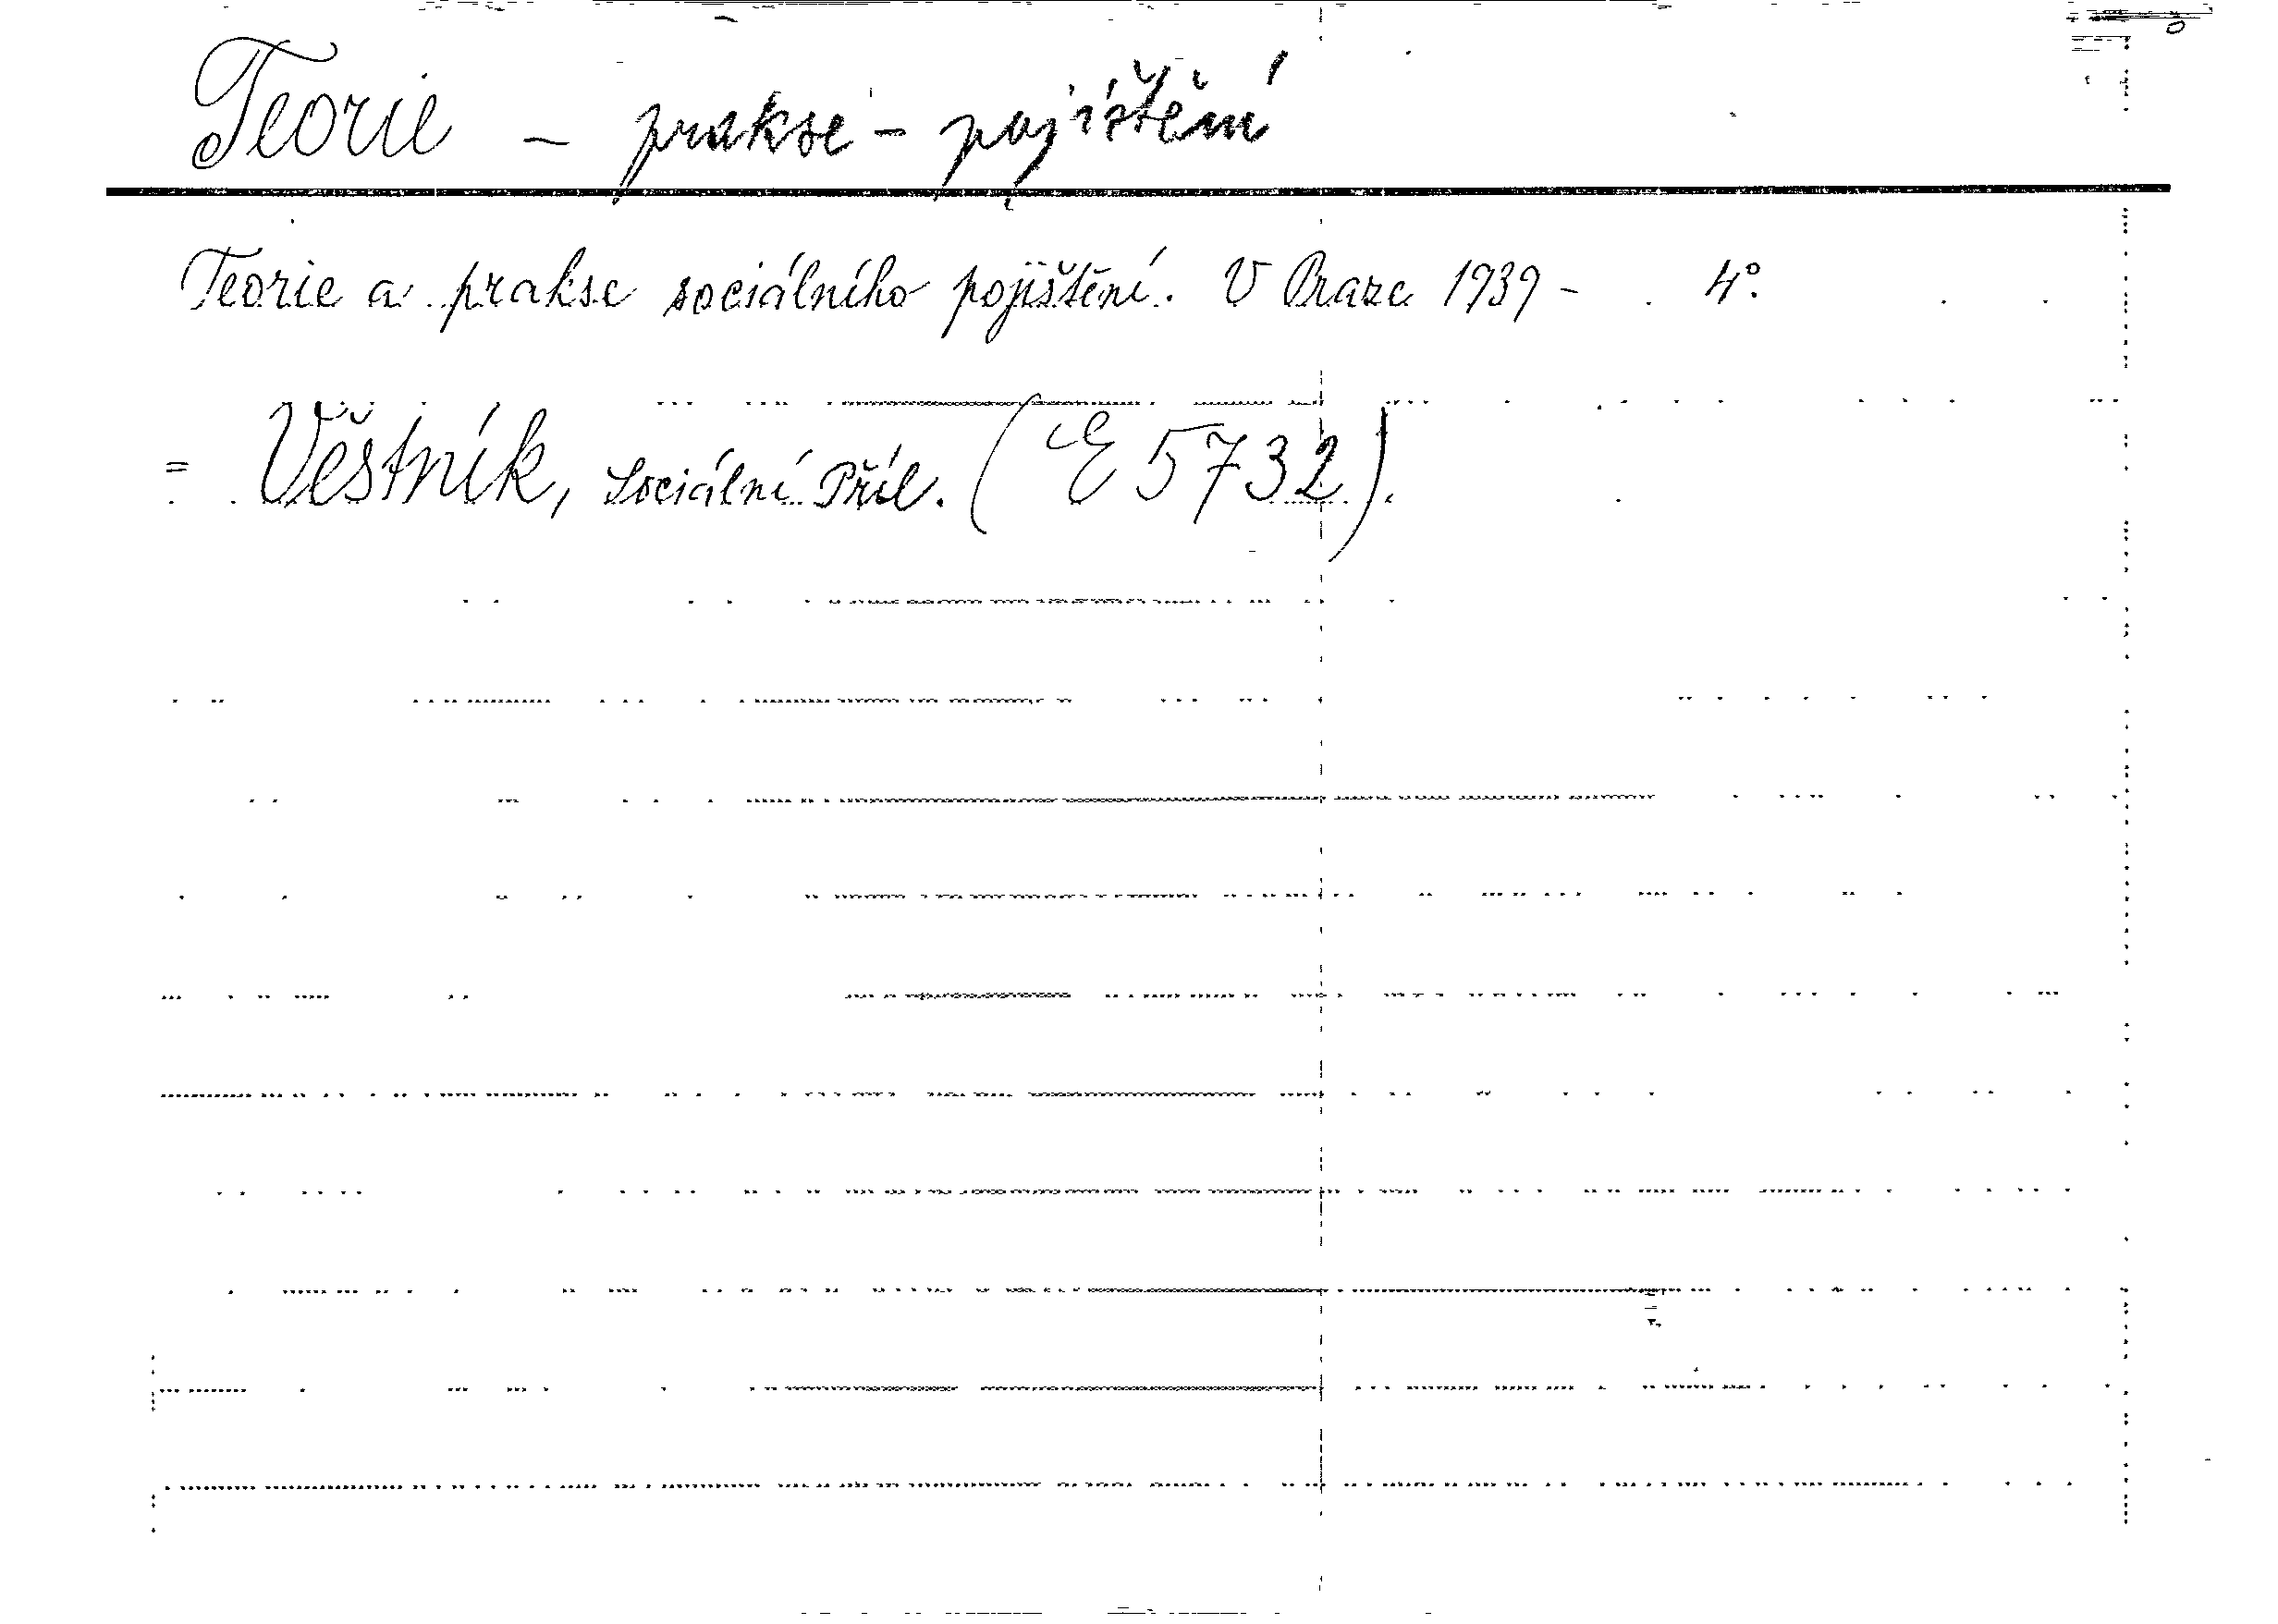 Teorie - prakse - pojištění
Teorie a prakse sociálního pojištění. V Praze 1939 - . 4°.
= Věstník, Sociální Příl. (E 5732).